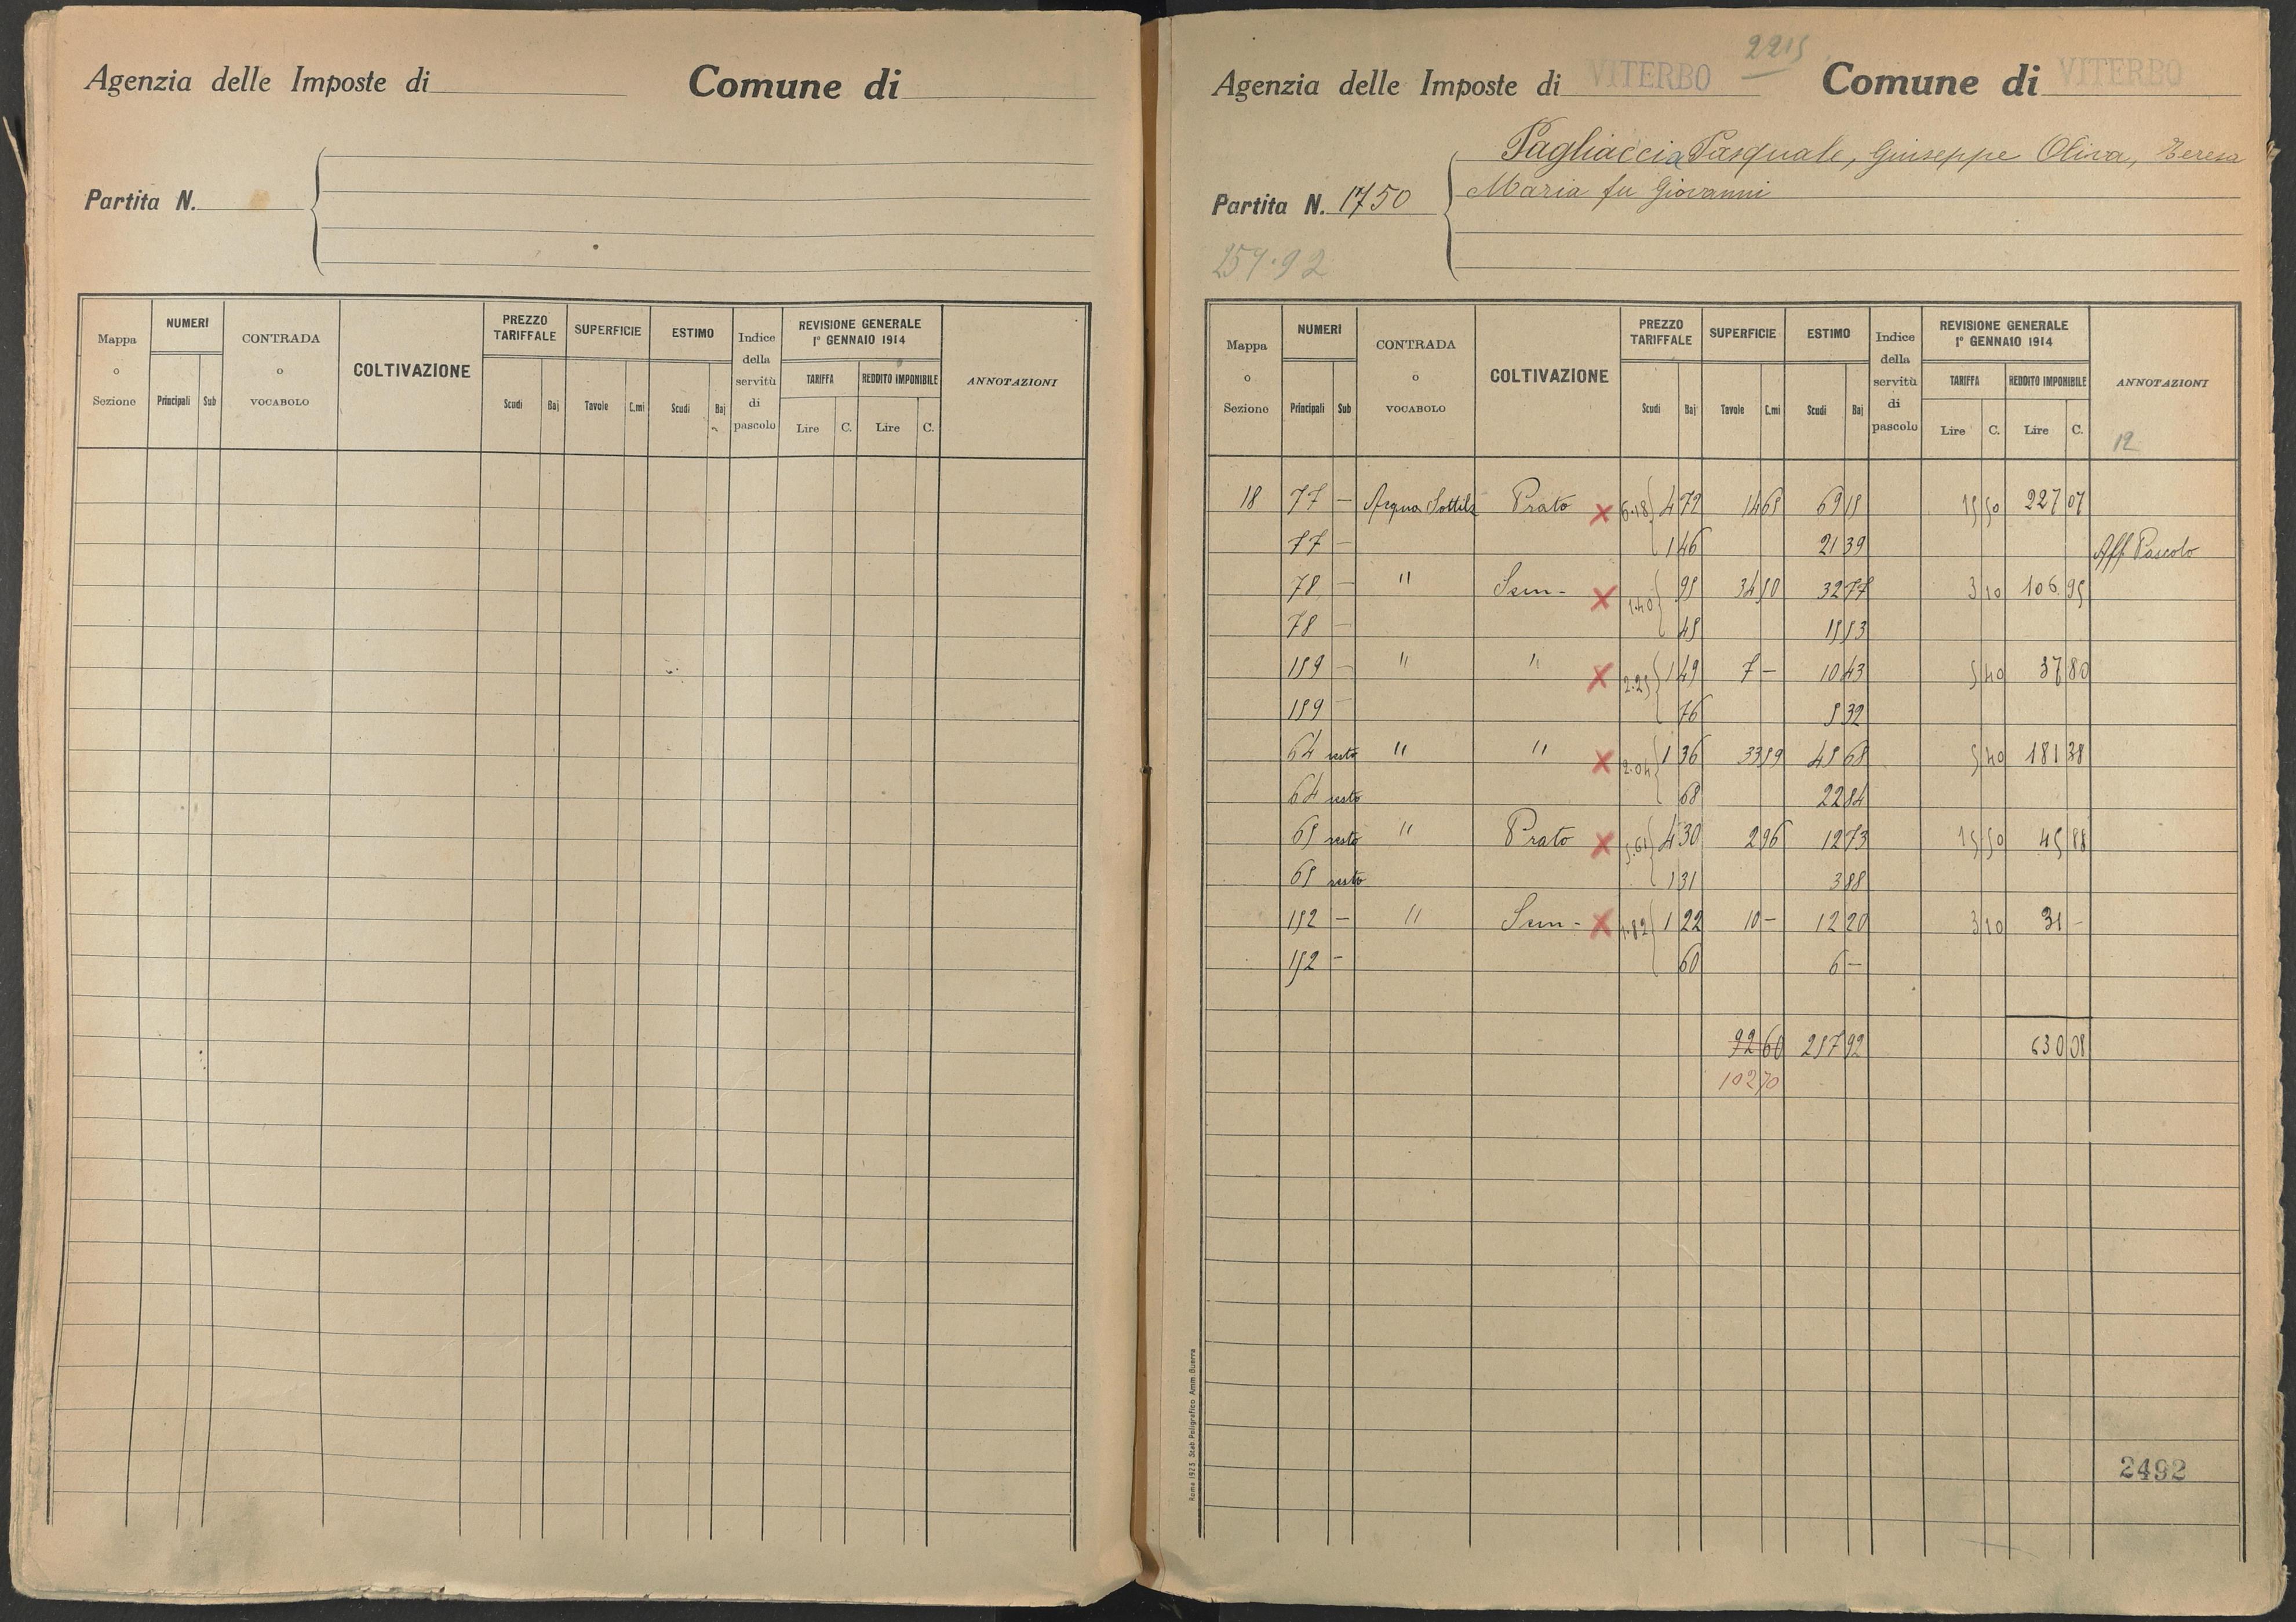 Agenzia delle Imposte di Comune di
Partita N.
Mappa o Sezione NUMERI Principali Sub CONTRADA o VOCABOLO COLTIVAZIONE PREZZO TARIFFALE Scudi Baj SUPERFICIE Tavole C.mi ESTIMO Scudi Baj Indice della servitù di pascolo REVISIONE GENERALE 1° GENNAIO 1914 TARIFFA Lire C. REDDITO IMPONIBILE Lire C. ANNOTAZIONI
2215
Agenzia delle Imposte di VITERBO Comune di VITERBO
Pagliaccia Pasquale, Giuseppe Oliva, Teresa
Partita N. 1750 Maria fu Giovanni
257.92
Mappa o Sezione NUMERI Principali Sub CONTRADA o VOCABOLO COLTIVAZIONE PREZZO TARIFFALE Scudi Baj SUPERFICIE Tavole C.mi ESTIMO Scudi Baj Indice della servitù di pascolo REVISIONE GENERALE 1° GENNAIO 1914 TARIFFA Lire C. REDDITO IMPONIBILE Lire C. ANNOTAZIONI
12
18 77 — Acqua Sottile Prato x 6.18 4 72 14 65 69 15 15 50 227 07
77 — 1 46 21 39 Aff Pascolo
78 — " Sem- x 1.40 95 34 50 32 77 3 10 106 95
78 — 45 15 53
159 — " " x 2.25 1 49 7 — 10 43 5 40 37 80
159 — 76 5 32
64 resto " " x 2.04 1 36 33 59 45 68 5 40 181 38
64 resto 68 22 84
65 resto " Prato x 5.61 4 30 2 96 12 73 15 50 45 88
65 resto 1 31 3 88
152 — " Sem- x 1.82 1 22 10 — 12 20 3 10 31 —
152 — 60 6 —
92 60 257 92 630 08
102 70
2492
Roma 1923 Stab. Poligrafico Amm. Guerra